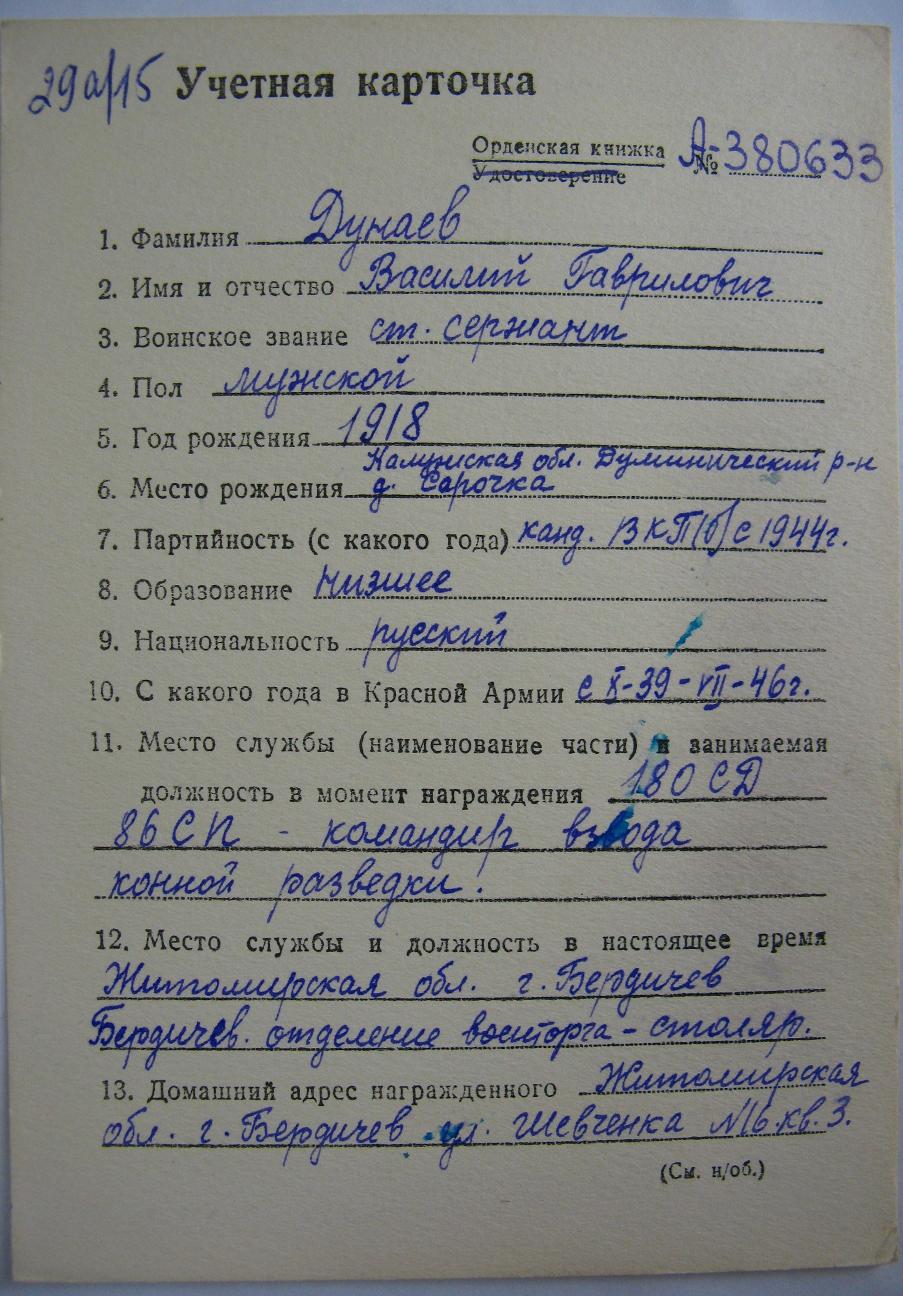 29а/15 Учетная карточка
Орденская книжка А-№ 380633
Удостоверение
1. Фамилия Дунаев
2. Имя и отчество Василий Гаврилович
3. Воинское звание ст. сержант
4. Пол мужской
5. Год рождения 1918
Калужская обл. Думинический р-н
6. Место рождения д. Сорочка
7. Партийность (с какого года) канд. ВКП(б) с 1944г.
8. Образование низшее
9. Национальность русский
10. С какого года в Красной Армии с X-39-VII-46г.
11. Место службы (наименование части) и занимаемая
должность в момент награждения 180 СД
86 СП - командир взвода
конной разведки.
12. Место службы и должность в настоящее время
Житомирская обл. г. Бердичев
Бердичев. отделение военторга - столяр.
13. Домашний адрес награжденного Житомирская
обл. г. Бердичев ул. Шевченка №16. кв. 3.
(См. н/об.)